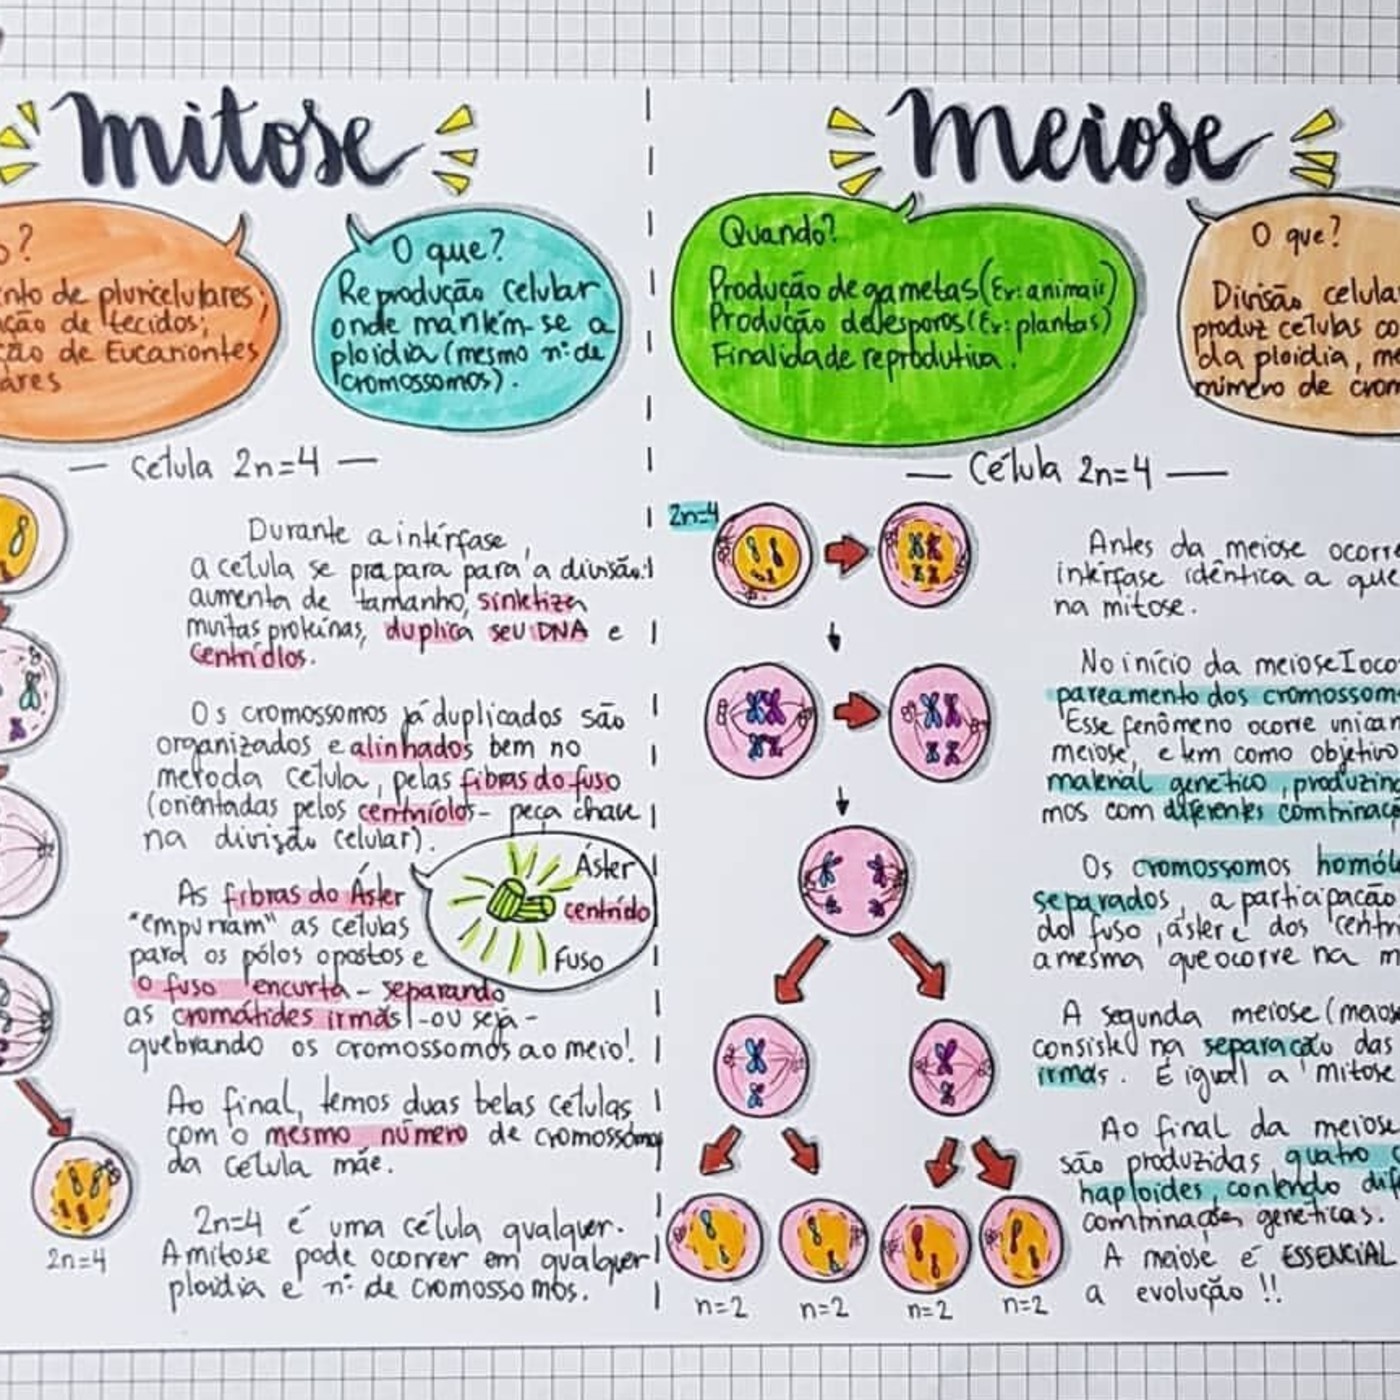 mitose
o?
nto de pluricelulares;
ção de tecidos;
ção de Eucariontes
ares
O que?
Reprodução celular
onde mantém-se a
ploidia (mesmo nº de
cromossomos).
— célula 2n=4 —
Durante a intérfase
a celula se prapara para a divisão:
aumenta de tamanho, sintetiza
muitas proteínas, duplica seu DNA e
Centríolos.
Os cromossomos já duplicados são
organizados e alinhados bem no
meio da celula, pelas fibras do fuso
(orientadas pelos centríolos- peça chave
na divisão celular).
Áster
centríolo
Fuso
As fibras do Áster
"empurram" as celulas
para os pólos opostos e
o fuso encurta - separando
as cromátides irmãs -ou seja-
quebrando os cromossomos ao meio!
Ao final, temos duas belas celulas
com o mesmo número de cromossomos
da celula mãe.
2n=4 é uma célula qualquer.
A mitose pode ocorrer em qualquer
ploidia e nº de cromossomos.
2n=4
meiose
Quando?
Produção de gametas (Ex: animais)
Produção de esporos (Ex: plantas)
Finalidade reprodutiva.
O que?
Divisão celula
produz celulas co
da ploidia, me
número de crom
— Célula 2n=4 —
2n=4
n=2
n=2
n=2
n=2
Antes da meiose ocorre
intérfase idêntica a que
na mitose.
No início da meiose I oco
pareamento dos cromossom
Esse fenômeno ocorre unicam
meiose, e tem como objetivo
material genético, produzin
mos com diferentes combinaç
Os cromossomos homól
separados, a participação
do fuso, áster e dos centr
a mesma que ocorre na m
A segunda meiose (meios
consiste na separação das
irmãs. É igual a mitose
Ao final da meiose
são produzidas quatro c
haploides, contendo dife
combinações genéticas.
A meiose é ESSENCIAL
a evolução !!